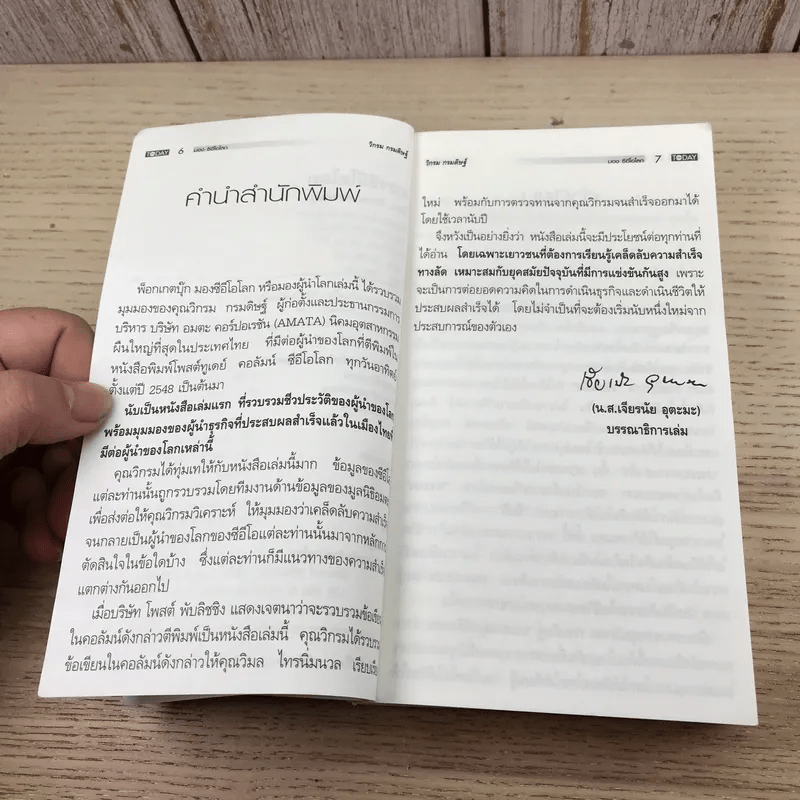 TODAY 6 มอง ซีอีโอโลก วิกรม กรมดิษฐ์
คำนำสำนักพิมพ์
พ็อกเกตบุ๊ก มองซีอีโอโลก หรือมองผู้นำโลกเล่มนี้ ได้รวบรวม
มุมมองของคุณวิกรม กรมดิษฐ์ ผู้ก่อตั้งและประธานกรรมการ
บริหาร บริษัท อมตะ คอร์ปอเรชัน (AMATA) นิคมอุตสาหกรรม
ผืนใหญ่ที่สุดในประเทศไทย ที่มีต่อผู้นำของโลกที่ตีพิมพ์ใน
หนังสือพิมพ์โพสต์ทูเดย์ คอลัมน์ ซีอีโอโลก ทุกวันอาทิตย์
ตั้งแต่ปี 2548 เป็นต้นมา
นับเป็นหนังสือเล่มแรก ที่รวบรวมชีวประวัติของผู้นำของโลก
พร้อมมุมมองของผู้นำธุรกิจที่ประสบผลสำเร็จแล้วในเมืองไทย
มีต่อผู้นำของโลกเหล่านี้
คุณวิกรมได้ทุ่มเทให้กับหนังสือเล่มนี้มาก ข้อมูลของซีอีโอ
แต่ละท่านนั้นถูกรวบรวมโดยทีมงานด้านข้อมูลของมูลนิธิอมตะ
เพื่อส่งต่อให้คุณวิกรมวิเคราะห์ ให้มุมมองว่าเคล็ดลับความสำเร็จ
จนกลายเป็นผู้นำของโลกของซีอีโอแต่ละท่านนั้นมาจากหลักการ
ตัดสินใจในข้อใดบ้าง ซึ่งแต่ละท่านก็มีแนวทางของความสำเร็จ
แตกต่างกันออกไป
เมื่อบริษัท โพสต์ พับลิชชิง แสดงเจตนาว่าจะรวบรวมข้อเขียน
ในคอลัมน์ดังกล่าวตีพิมพ์เป็นหนังสือเล่มนี้ คุณวิกรมได้รวบรวม
ข้อเขียนในคอลัมน์ดังกล่าวให้คุณวิมล ไทรนิ่มนวล
วิกรม กรมดิษฐ์ มอง ซีอีโอโลก 7 TODAY
ใหม่ พร้อมกับการตรวจทานจากคุณวิกรมจนสำเร็จออกมาได้
โดยใช้เวลานับปี
จึงหวังเป็นอย่างยิ่งว่า หนังสือเล่มนี้จะมีประโยชน์ต่อทุกท่านที่
ได้อ่าน โดยเฉพาะเยาวชนที่ต้องการเรียนรู้เคล็ดลับความสำเร็จ
ทางลัด เหมาะสมกับยุคสมัยปัจจุบันที่มีการแข่งขันกันสูง เพราะ
จะเป็นการต่อยอดความคิดในการดำเนินธุรกิจและดำเนินชีวิตให้
ประสบผลสำเร็จได้ โดยไม่จำเป็นที่จะต้องเริ่มนับหนึ่งใหม่จาก
ประสบการณ์ของตัวเอง
(น.ส.เจียรนัย อุตะมะ)
บรรณาธิการเล่ม